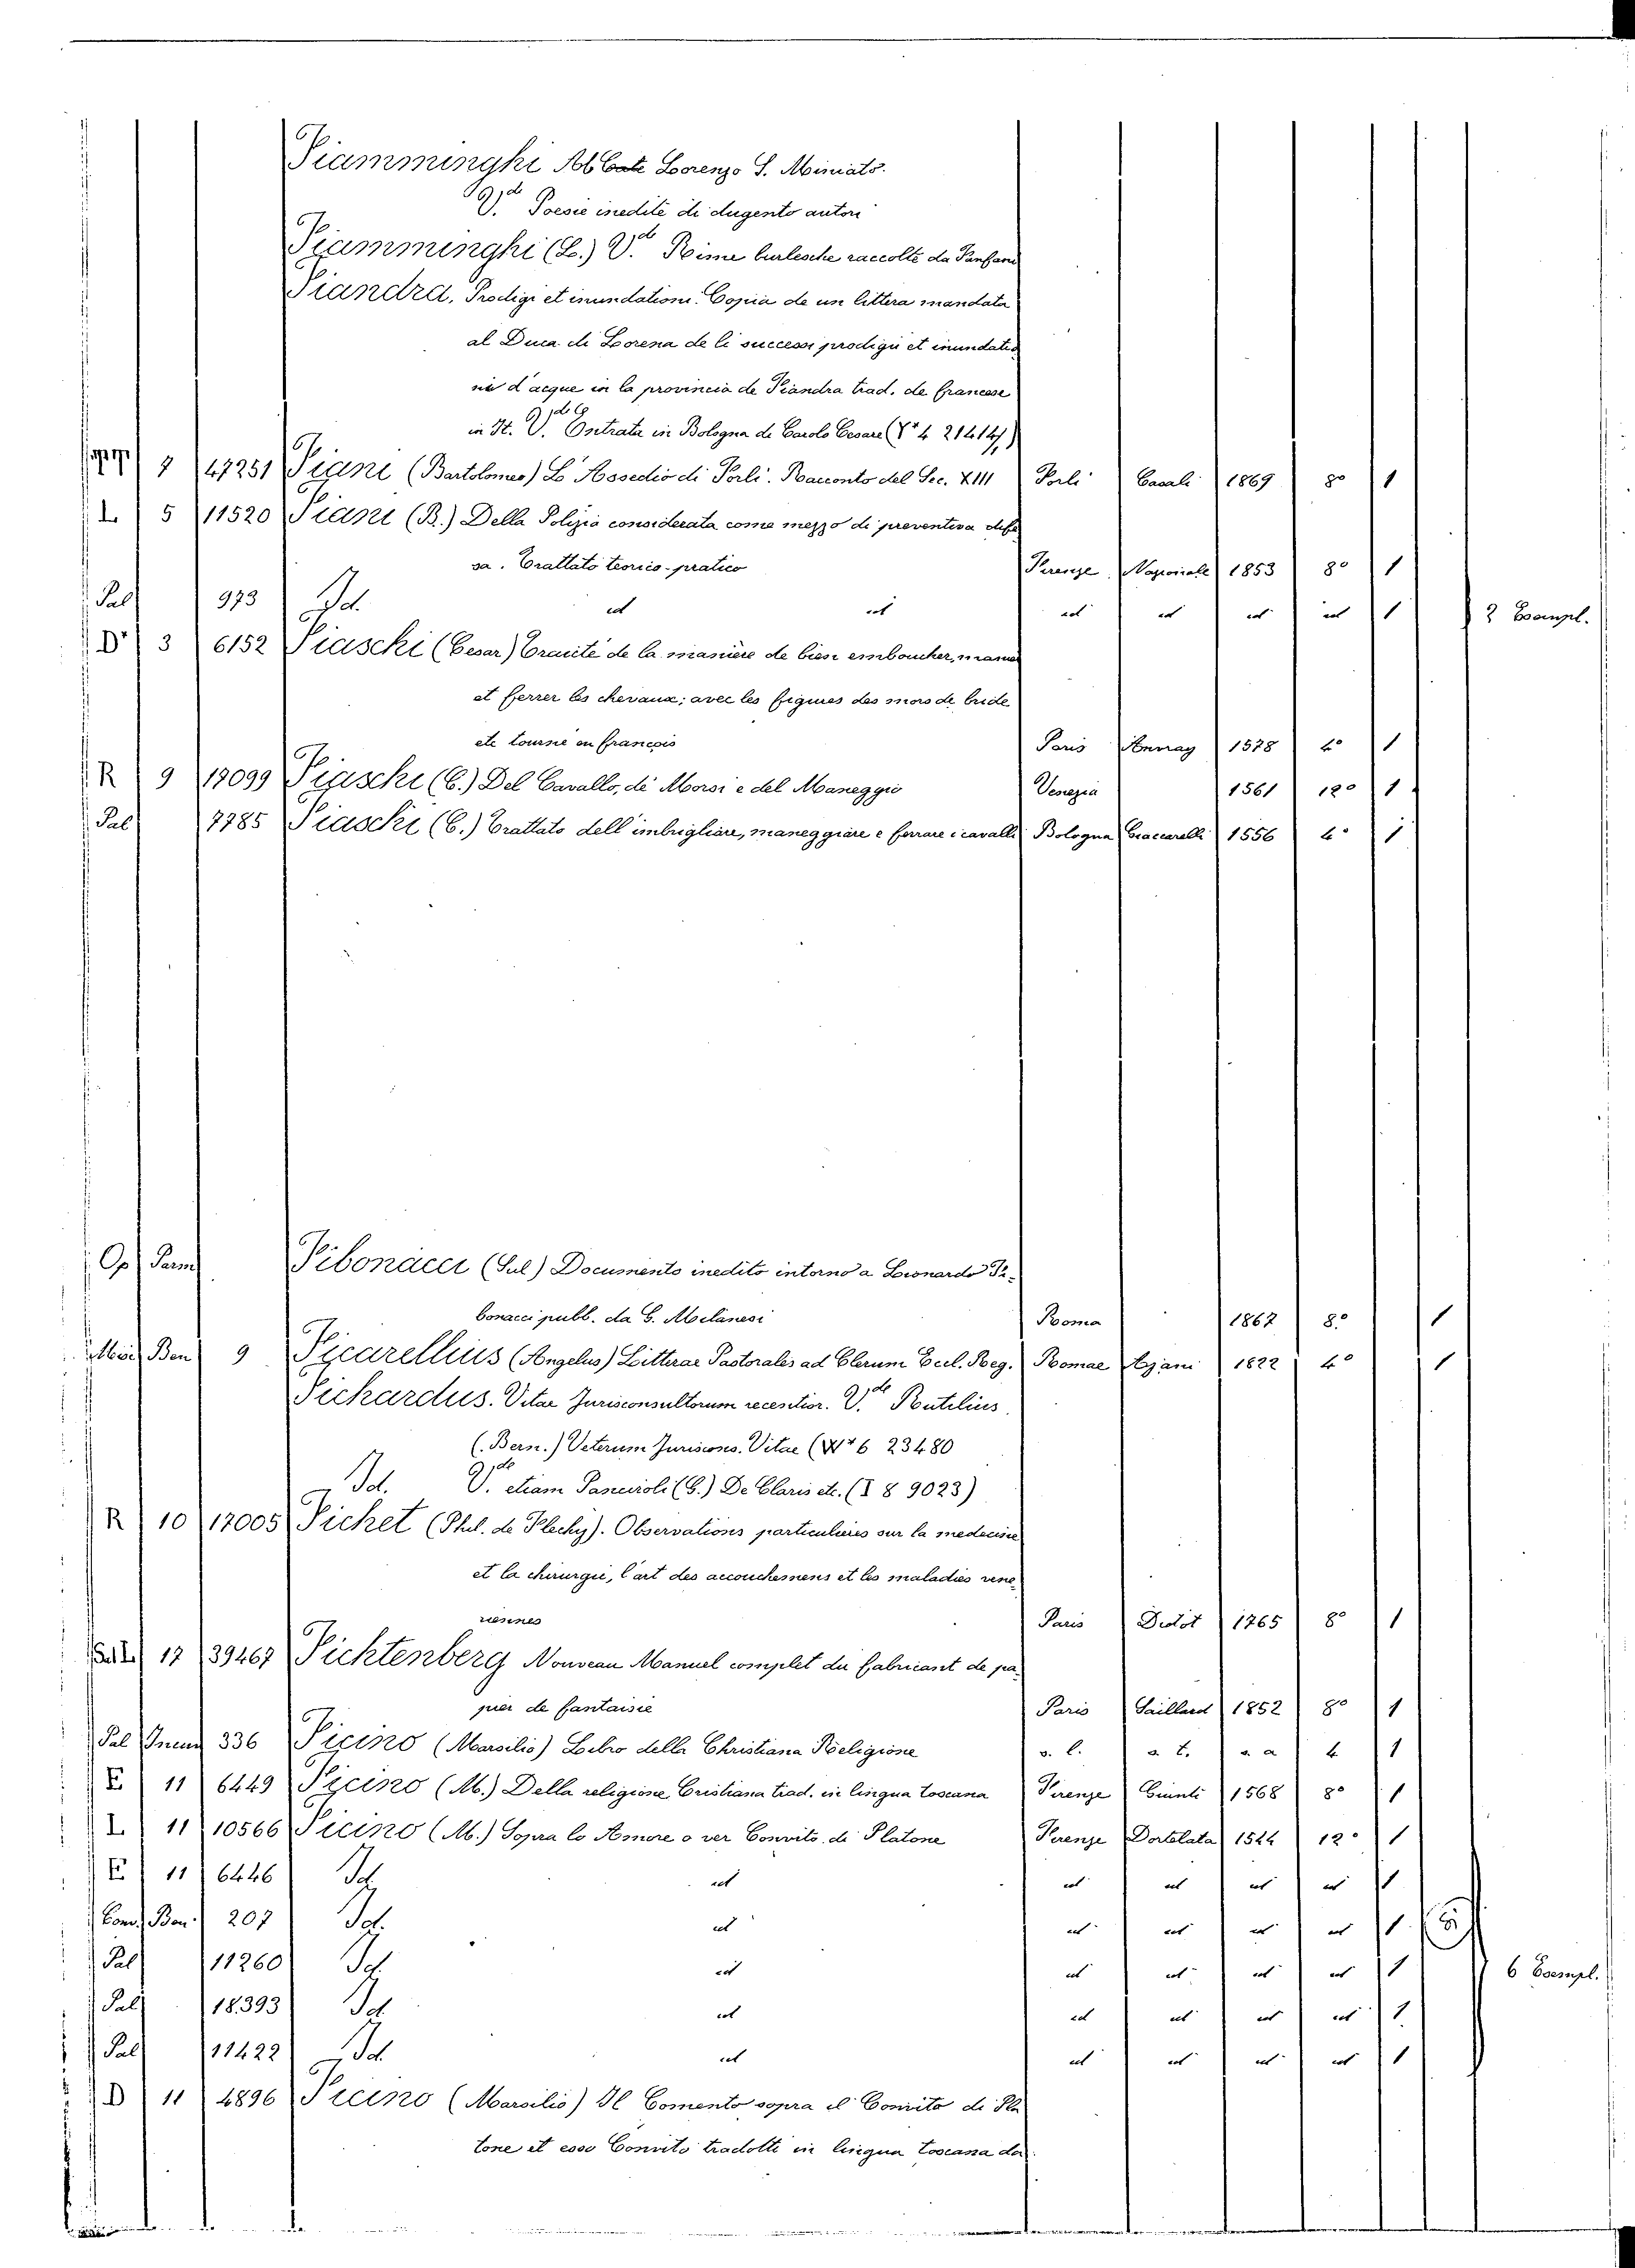 Fiamminghi Abbate Lorenzo S. Miniato.
V.de Poesie inedite di dugento autori
Fiamminghi (L.) V.de Rime burlesche raccolte da Fanfani
Fiandra, Prodigi et inundationi. Copia de un littera mandata
al Duca di Lorena de li successi prodigii et inundatio
nii d'acque in la provincia de Fiandra trad. de francese
in It. V.de Entrata in Bologna de Carolo Cesare (V+ 4 21414)
7 47251 Fiani (Bartolomeo) L'Assedio di Forlì. Racconto del Sec. XIII Forlì Casali 1869 8o 1
L 5 11520 Fiani (B.) Della Polizia considerata come mezzo di preventiva dife
sa. Trattato teorico-pratico Firenze Nazionale 1853 8o 1
Pal 973 Id. id id id id id id 1 2 Esempl.
D+ 3 6152 Fiaschi (Cesar) Traicté de la manière de bien emboucher, manier
et ferrer les chevaux; avec les figures des mors de bride
etc tourne en françois Paris Perray 1578 4o 1
R 9 17099 Fiaschi (C.) Del Cavallo, di Morsi e del Maneggio Venezia 1561 12o 1
Pal 7785 Fiaschi (C.) Trattato dell'imbrigliare, maneggiare e ferrare i cavalli Bologna Giaccarelli 1556 4o 1
Op Parm Fibonacci (Sul) Documento inedito intorno a Leonardo Fi-
bonacci pubb. da G. Milanesi Roma 1867 8o 1
Misc Ben 9 Ficarellius (Angelus) Litterae Pastorales ad Clerum Eccl. Reg. Romae Ajani 1822 4o 1
Fichardus. Vitae Jurisconsultorum recentior. V.de Rutilius
(Bern.) Veterum Juriscons. Vitae (W+ 6 23480
Id. V.de etiam Panciroli (G.) De Claris etc. (I 8 9023)
R 10 17005 Fichet (Phil. de Flechy). Observations particulieres sur la medecine
et la chirurgie, l'art des accouchemens et les maladies vene
riennes Paris Didot 1765 8o 1
17 39467 Fichtenberg Nouveau Manuel complet du fabricant de pa-
pier de fantaisie Paris Saillard 1852 8o 1
Pal Incun 336 Ficino (Marsilio) Libro della Christiana Religione s. l. s. t. s. a 4 1
E 11 6449 Ficino (M.) Della religione Cristiana trad. in lingua toscana Firenze Giunti 1568 8o 1
L 11 10566 Ficino (M.) Sopra lo Amore o ver Convito di Platone Firenze Dortelata 1544 12o 1
E 11 6446 Id. id id id id id 1
Cons. Ben. 207 Id. id id id id id 1
Pal 11260 Id. id id id id id 1 6 Esempl.
Pal 18393 Id. id id id id id 1
Pal 11422 Id. id id id id id 1
D 11 4896 Ficino (Marsilio) Il Comento sopra il Convito di Pla
tone et esso Convito tradotti in lingua toscana da